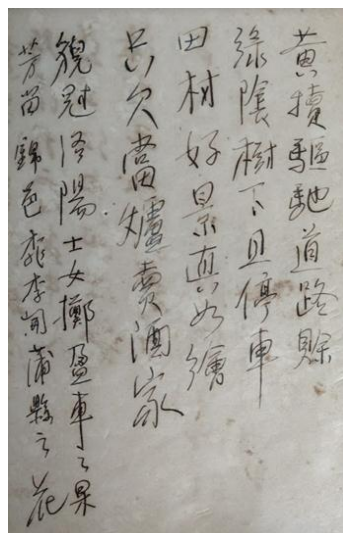 黃犢驅馳道路賒
綠陰樹下且停車
田村好景真如繪
只欠當爐賣酒家
貌冠洛陽士女擲盈車之果
芳留錦色桃李間蒲縣之花